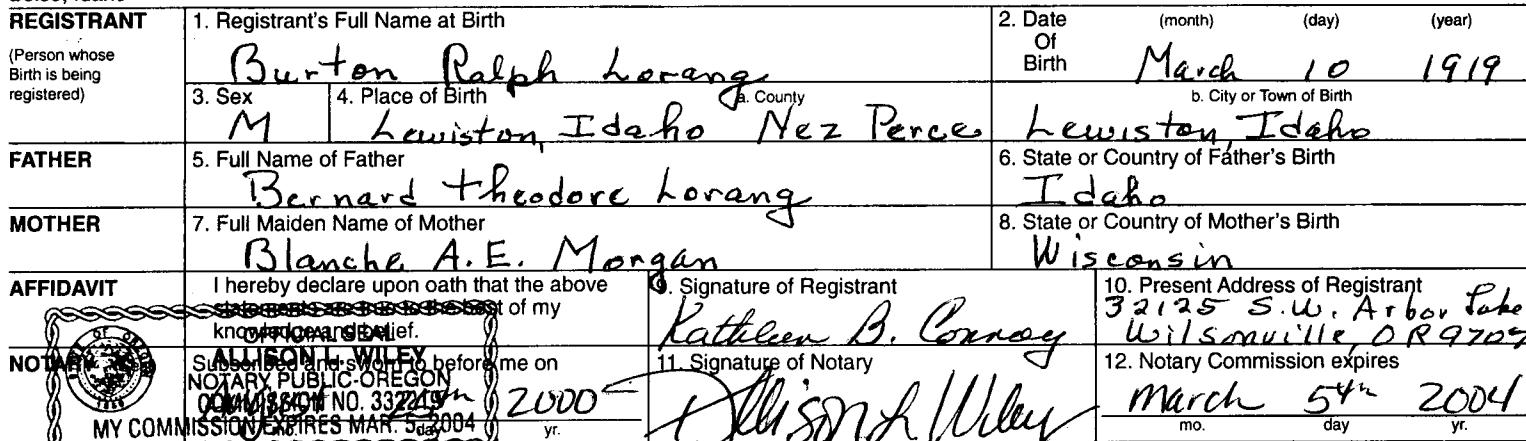 REGISTRANT
(Person whose
Birth is being
registered)
1. Registrant's Full Name at Birth
Burton Ralph Lorang
2. Date
Of
Birth
(month) (day) (year)
March 10 1919
3. Sex
M
4. Place of Birth
a. County
Lewiston, Idaho Nez Perce
b. City or Town of Birth
Lewiston, Idaho
FATHER
5. Full Name of Father
Bernard Theodore Lorang
6. State or Country of Father's Birth
Idaho
MOTHER
7. Full Maiden Name of Mother
Blanche A. E. Morgan
8. State or Country of Mother's Birth
Wisconsin
AFFIDAVIT
I hereby declare upon oath that the above
statements are true to the best of my
knowledge and belief.
9. Signature of Registrant
Kathleen B. Conroy
10. Present Address of Registrant
32125 S.W. Arbor Lake
Wilsonville, OR
NOTARY
Subscribed and sworn to before me on
2000
mo. day yr.
OFFICIAL SEAL
ALLISON L. WILEY
NOTARY PUBLIC-OREGON
COMMISSION NO. 332249
MY COMMISSION EXPIRES MAR. 5, 2004
11. Signature of Notary
Allison L Wiley
12. Notary Commission expires
March 5th 2004
mo. day yr.